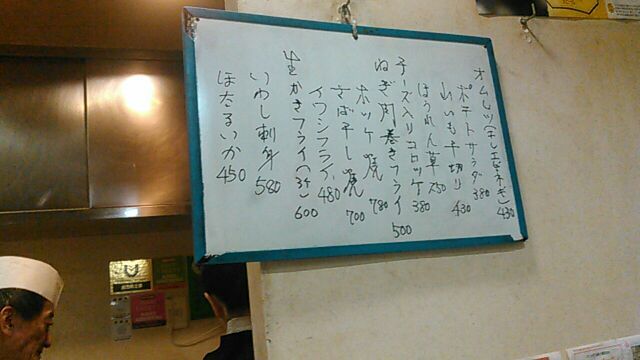 オムレツ(干しエビネギ)430
ポテトサラダ380
山いも千切り430
ほうれん草250
チーズ入りコロッケ380
ねぎ肉巻きフライ500
ホッケ焼780
さば干し焼700
イワシフライ480
生かきフライ(3ケ)600
いわし刺身580
ほたるいか450